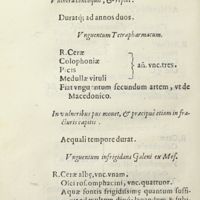 Durat q; ad annos duos.
Vnguentum Tetrapharmacum.
R. Ceræ
Colophoniæ
Picis
Medullæ vituli
añ. vnc. tres.
Fiat vnguentum secundum artem, vt de
Macedonico.
In vulneribus pus mouet, & præcipuè etiam in fra-
cturis capitis.
Aequali tempore durat.
Vnguentum infrigidans Galeni ex Mes.
R. Ceræ albę, vnc. vnam,
Olei ros. omphacini, vnc. quatuor.
Aquæ fontis frigidissimę quantum suffi-